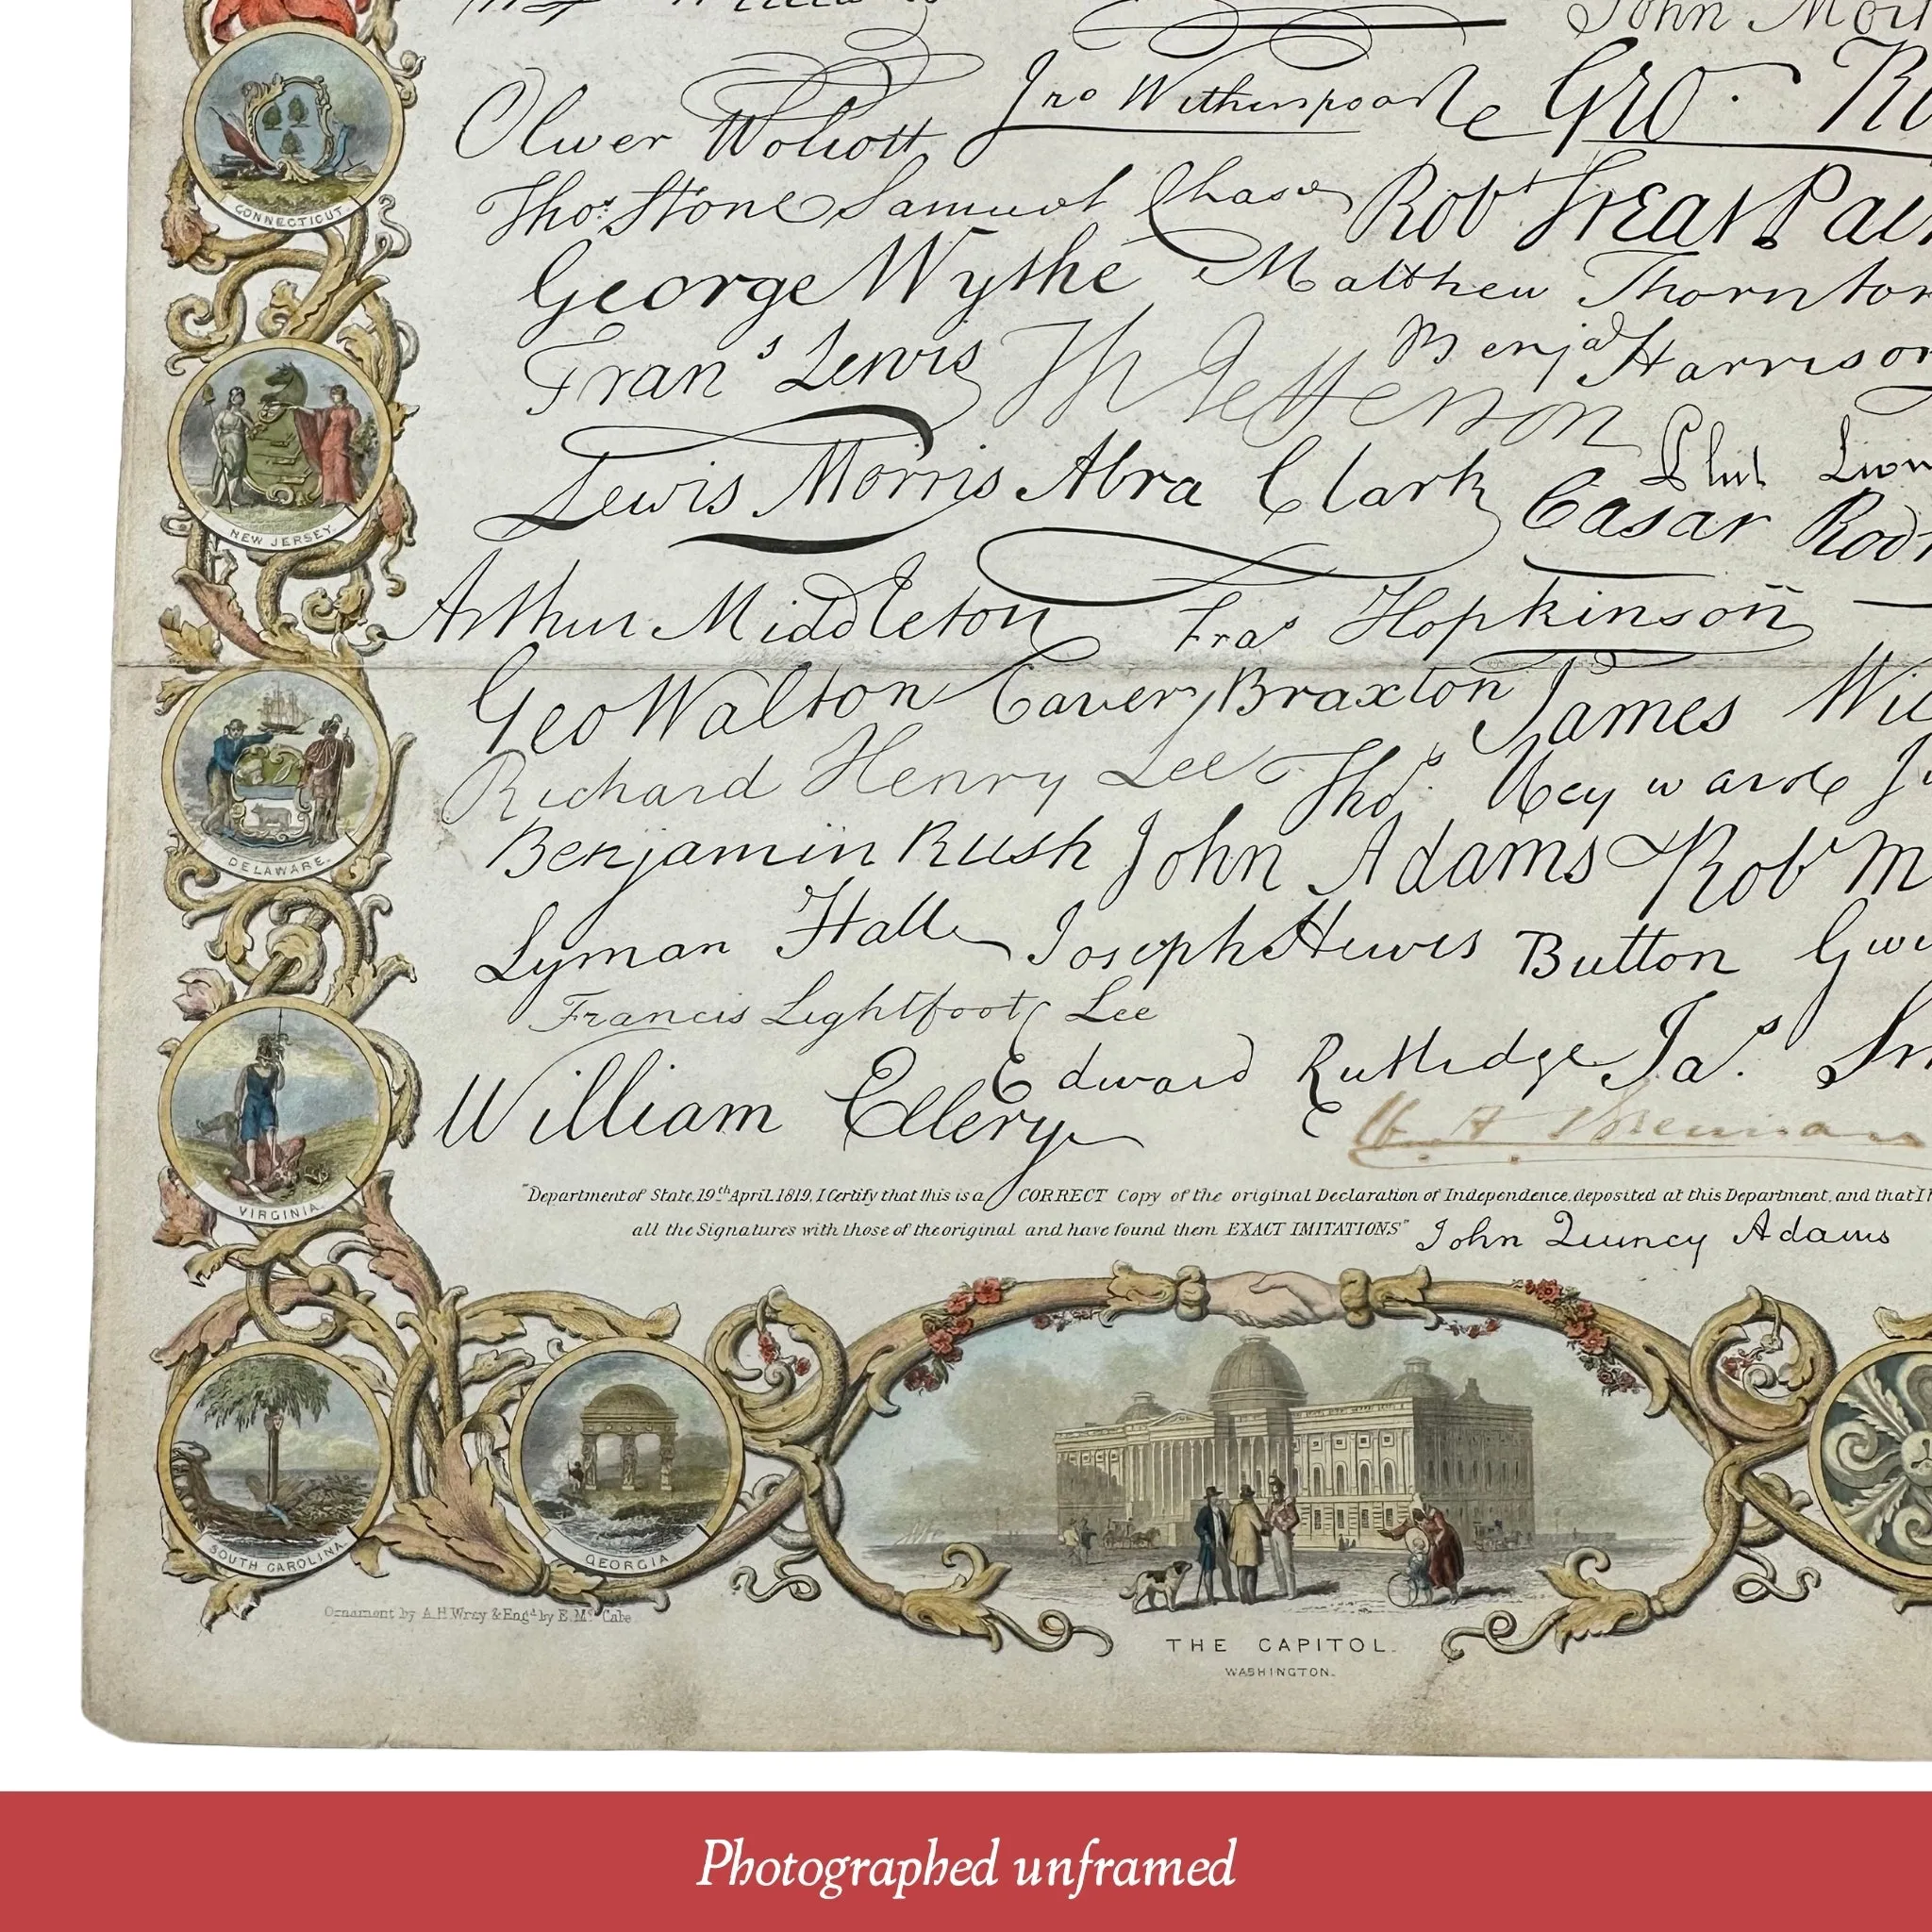 John
CONNECTICUT
Oliver Wolcott Jno Witherspoon Geo.
Thos. Stone Samuel Chase Robt Treat
George Wythe Matthew Thornton
Frans Lewis Th Jefferson Benja Harrison
Lewis Morris Abra Clark Phil
Cæsar
NEW JERSEY.
Arthur Middleton Fras Hopkinson
Geo Walton Carter Braxton James
Richard Henry Lee Thos. Heyward
Benjamin Rush John Adams Robt
DELAWARE.
Lyman Hall Joseph Hewes Button
Francis Lightfoot Lee
William Ellery Edward Rutledge Jas.
VIRGINIA.
"Department of State, 19th April 1819, I Certify that this is a CORRECT Copy of the original Declaration of Independence, deposited at this Department, and that I
all the Signatures with those of the original and have found them EXACT IMITATIONS" John Quincy Adams
SOUTH CAROLINA.
GEORGIA
Ornament by A.H. Wray & Engd by E. Mc Cabe
THE CAPITOL.
WASHINGTON.
Photographed unframed